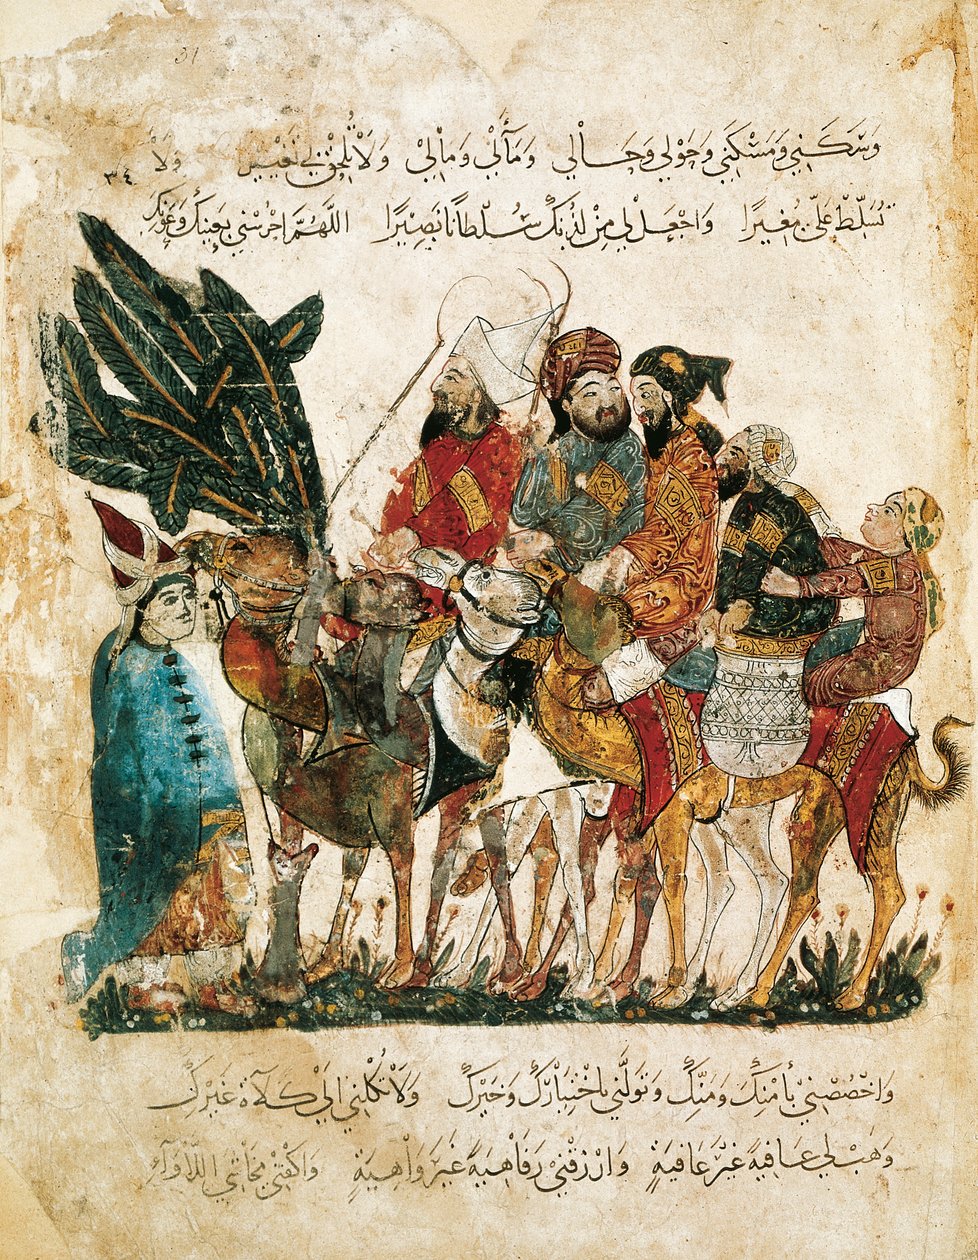 31
وَسَكَنِي وَمَسْكَنِي وَحَوْلِي وَحَالِي وَمَآلِي وَمَالِي وَلَا تُلْحِقْ بِي تَغْيِيرًا وَلَا
٣٤
تُسَلِّطْ عَلَيَّ مُغِيرًا وَاجْعَلْ لِي مِنْ لَدُنْكَ سُلْطَانًا نَصِيرًا اللَّهُمَّ احْرُسْنِي بِعَيْنِكَ وَعَوْنِكَ
وَاخْصُصْنِي بِأَمْنِكَ وَمَنِّكَ وَتَوَلَّنِي بِاخْتِيَارِكَ وَخَيْرِكَ وَلَا تَكِلْنِي إِلَى كَلَاءَةِ غَيْرِكَ
وَهَبْ لِي عَافِيَةً غَيْرَ عَافِيَةٍ وَارْزُقْنِي رَفَاهِيَةً غَيْرَ وَاهِيَةٍ وَاكْفِنِي مَخَاشِيَ اللَّأْوَاءِ